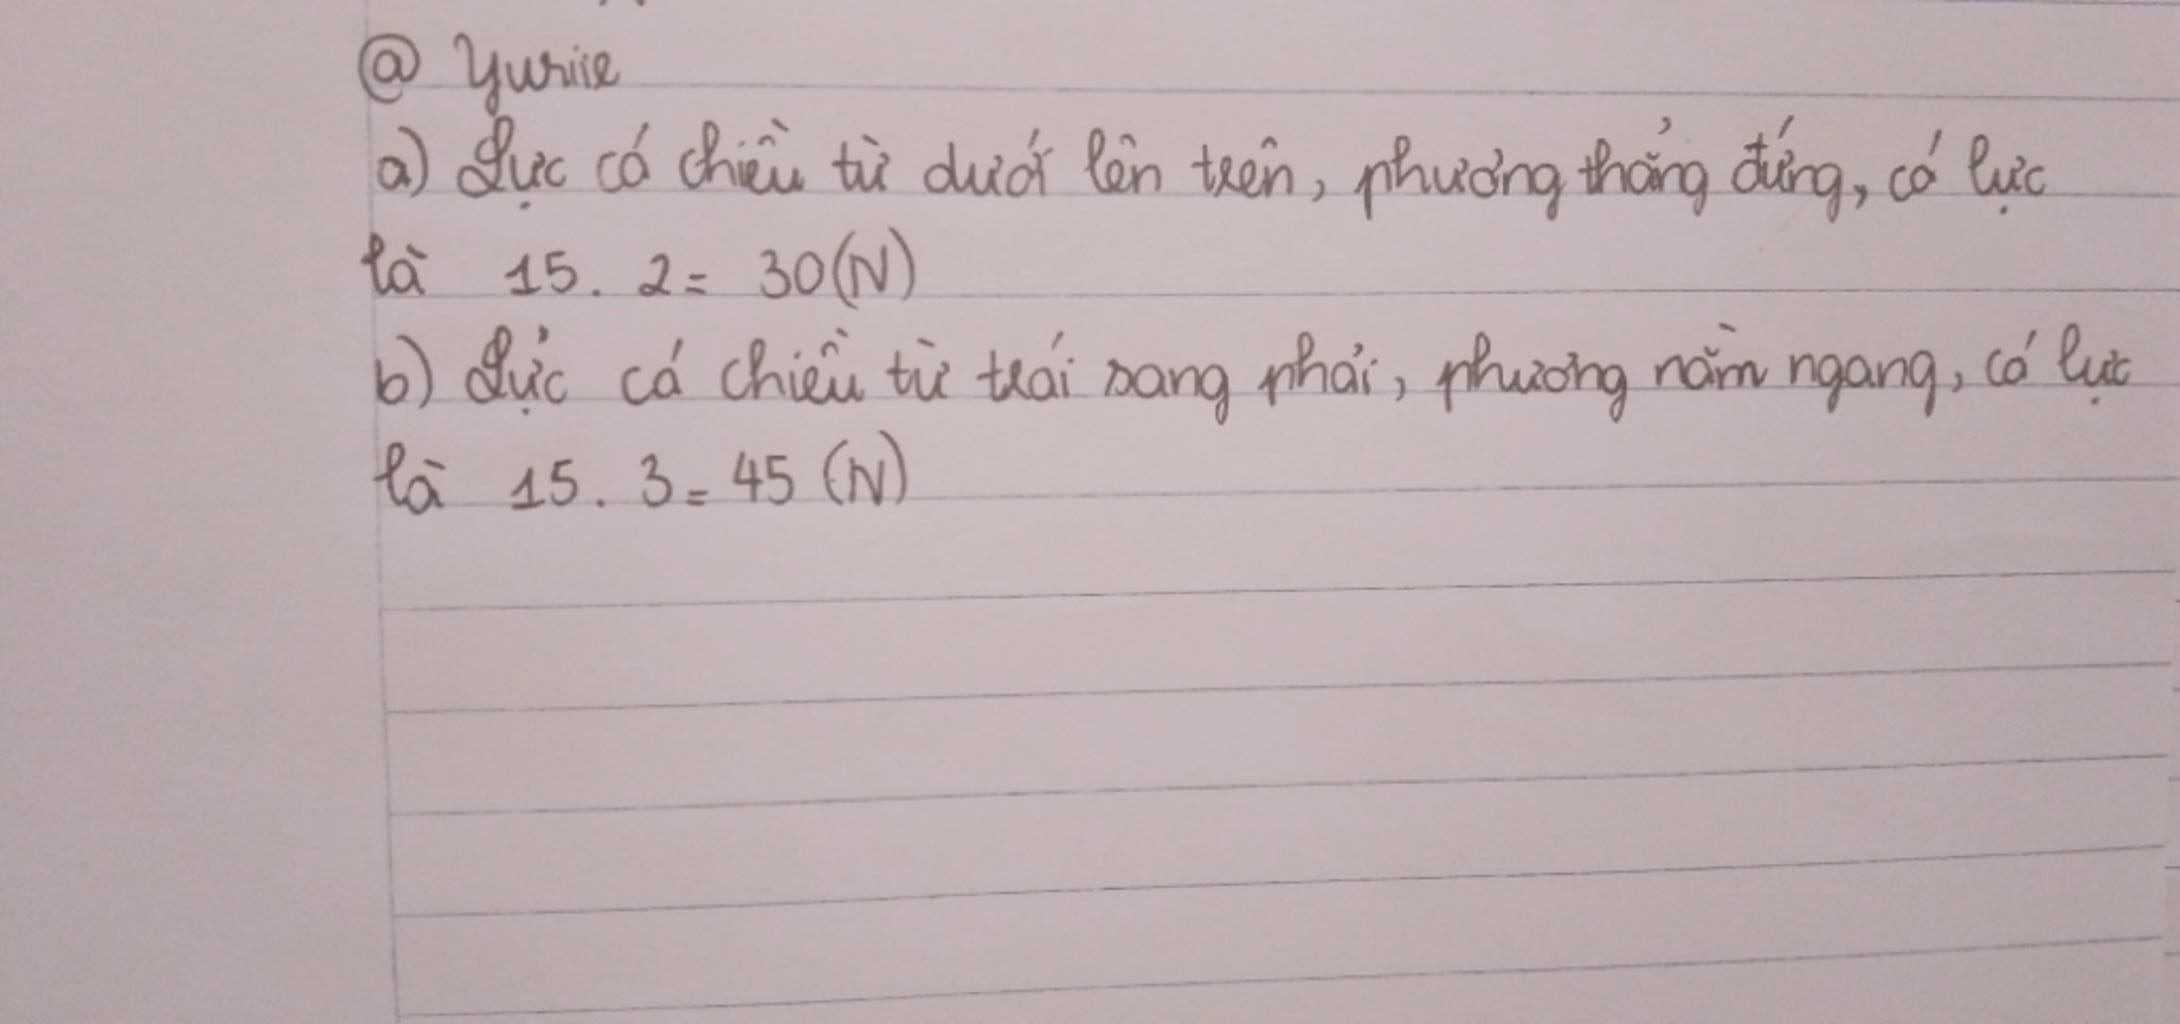 @ Yuriie
a) Lực có chiều từ dưới lên trên, phương thẳng đứng, có lực
là 15. 2= 30(N)
b) Lực có chiều từ trái sang phải, phương nằm ngang, có lực
là 15. 3= 45 (N)